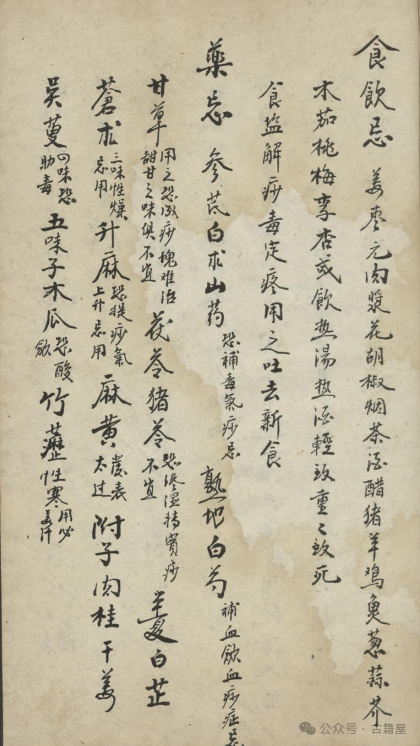 食飲忌 姜枣元肉漿花胡椒烟茶酒醋猪羊鸡魚葱蒜芥
木茄桃梅李杏或飲热湯热酒輕致重重致死
食盐解痧毒定疼用之吐去新食
藥忌 参芪白术山药恐補毒氣痧忌 熟地白芍補血飲血痧症忌
甘草用之恐成痧塊难治甜甘之味俱不宜 茯苓猪苓恐渗湿转實痧不宜 半夏白芷
蒼术三味性燥忌用 升麻恐提痧氣上升忌用 麻黄發表太过 附子肉桂干姜
吴萸四味恐助毒 五味子木瓜恐酸飲 竹瀝性寒用必姜汁
公众号·古籍屋